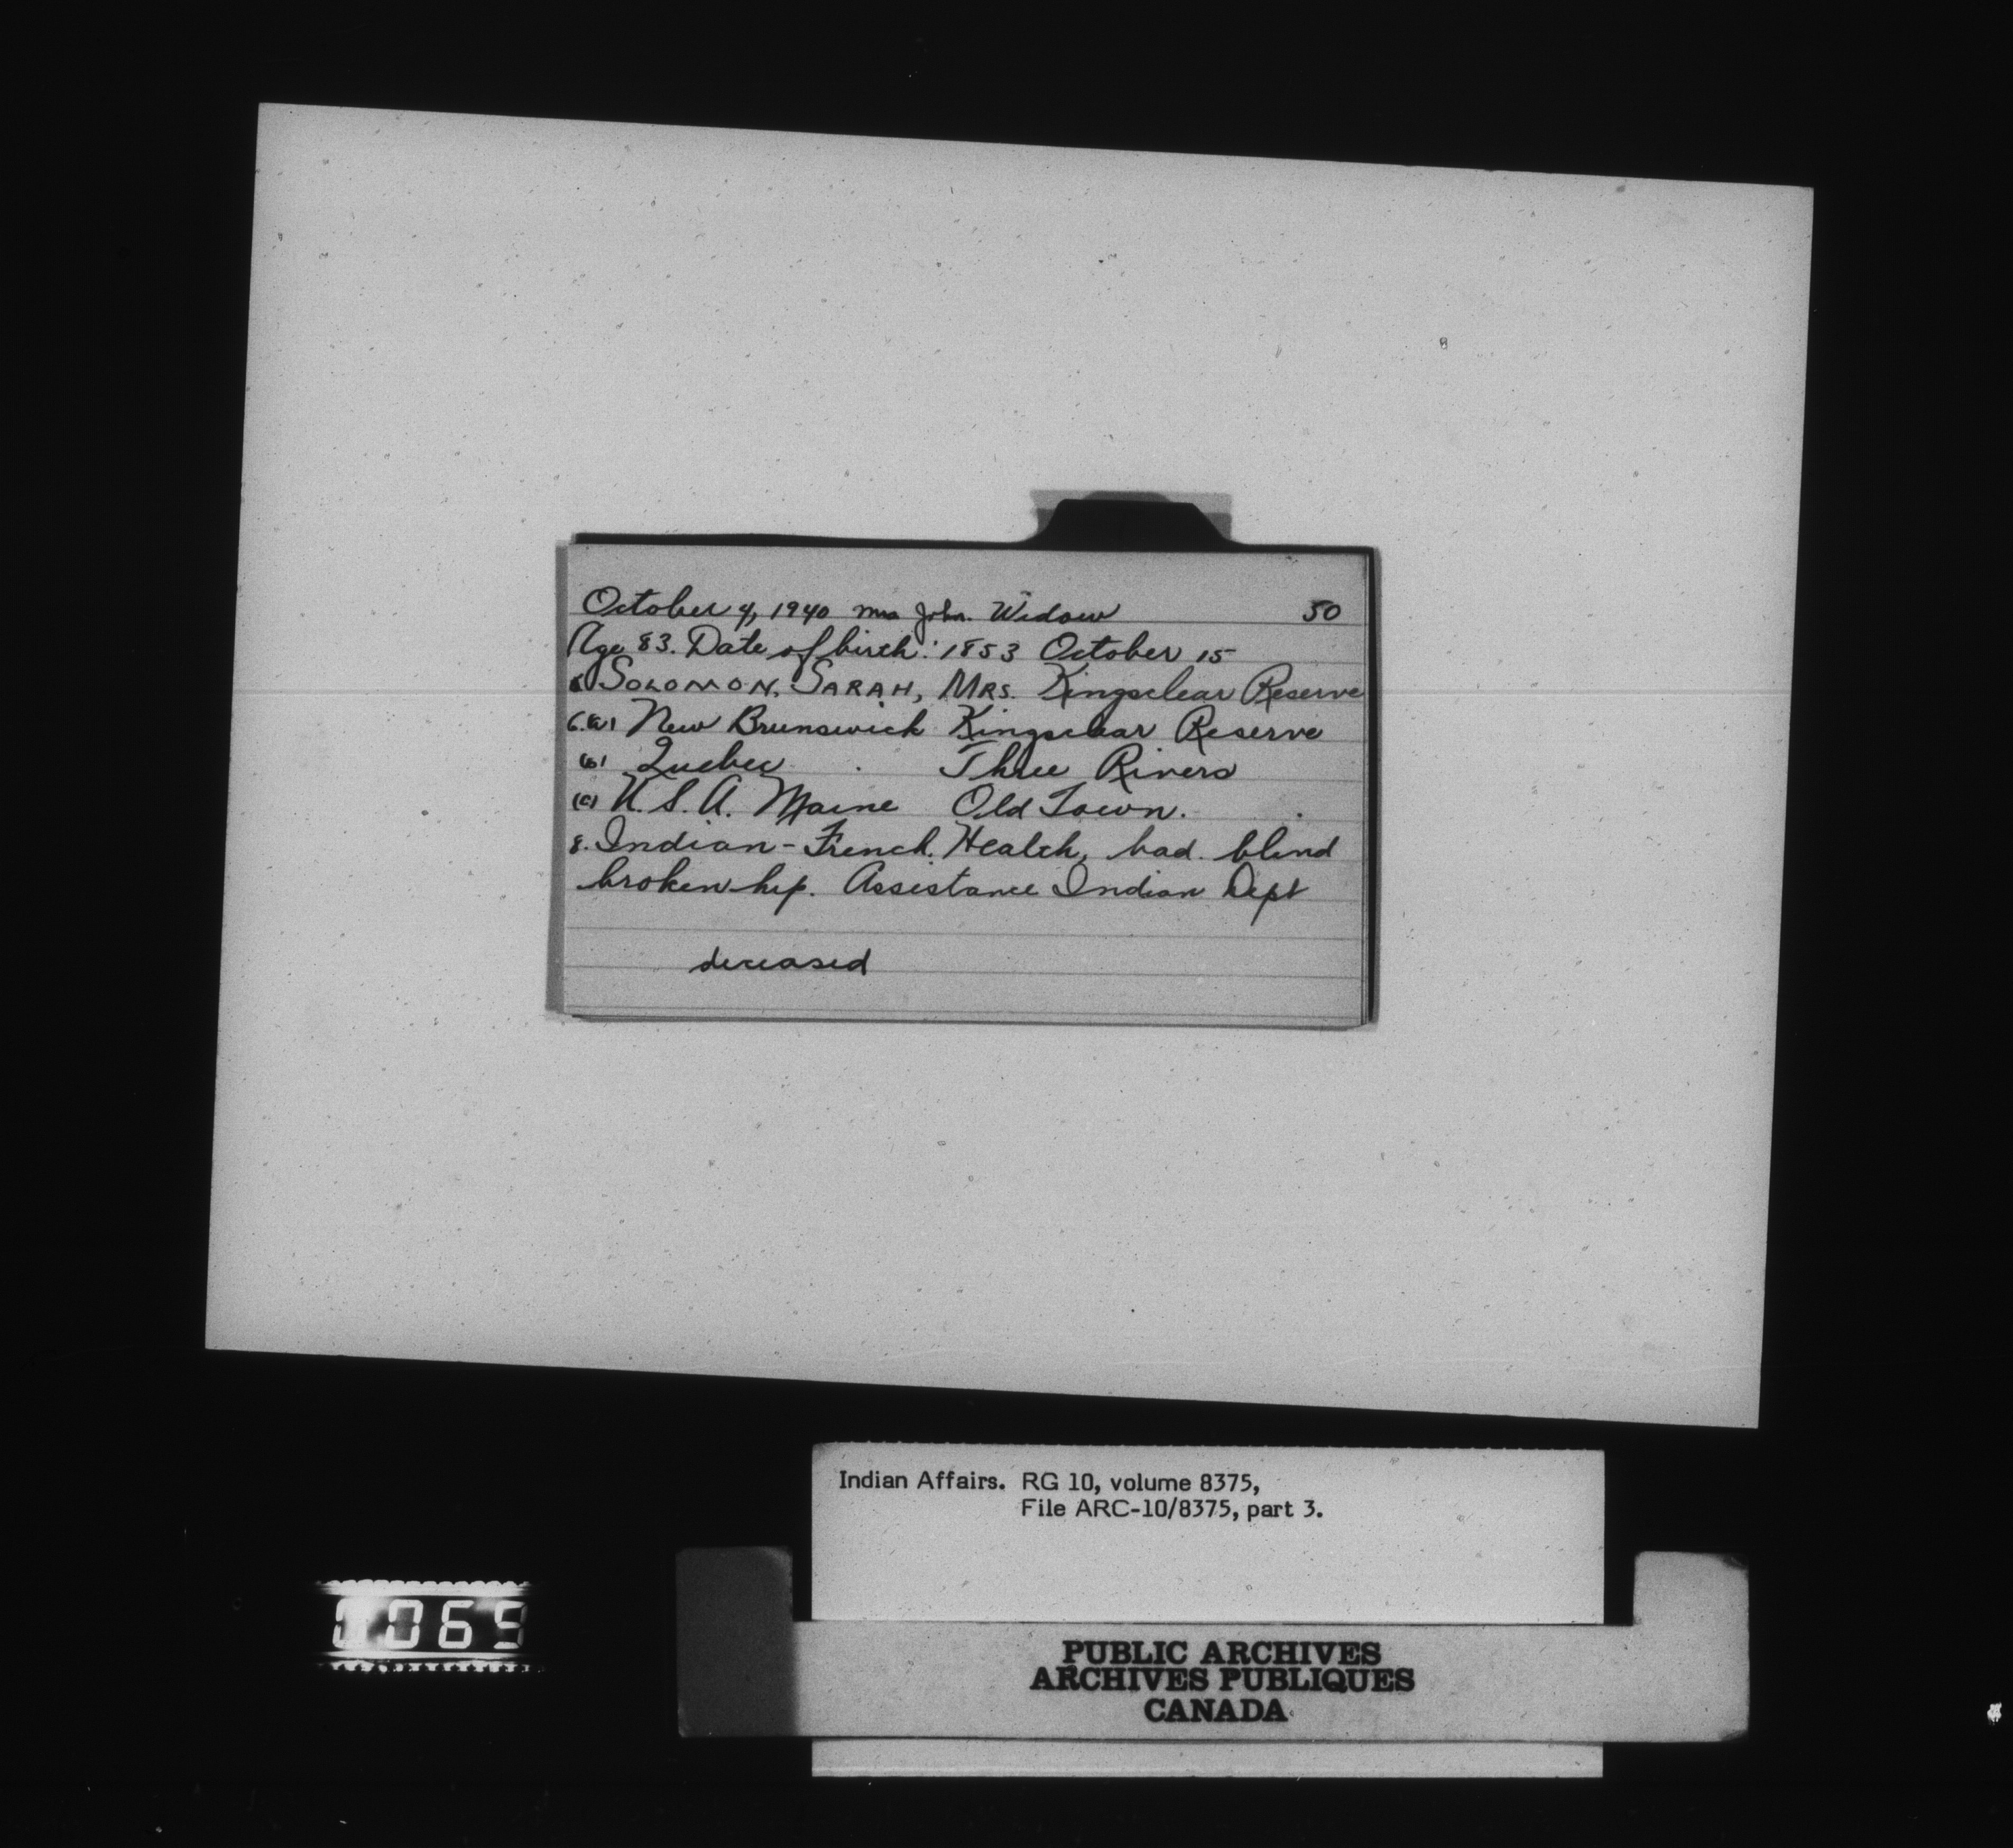 October 4, 1940 Mrs John. Widow 50
Age 83. Date of birth: 1853 October 15
SOLOMON, SARAH, MRS. Kingsclear Reserve
6.(a) New Brunswick Kingsclear Reserve
(b) Quebec. Three Rivers
(c) U.S.A. Maine Old Town.
8. Indian-French. Health, bad. blind
broken hip. Assistance Indian Dept
deceased
Indian Affairs. RG 10, volume 8375,
File ARC-10/8375, part 3.
PUBLIC ARCHIVES
ARCHIVES PUBLIQUES
CANADA